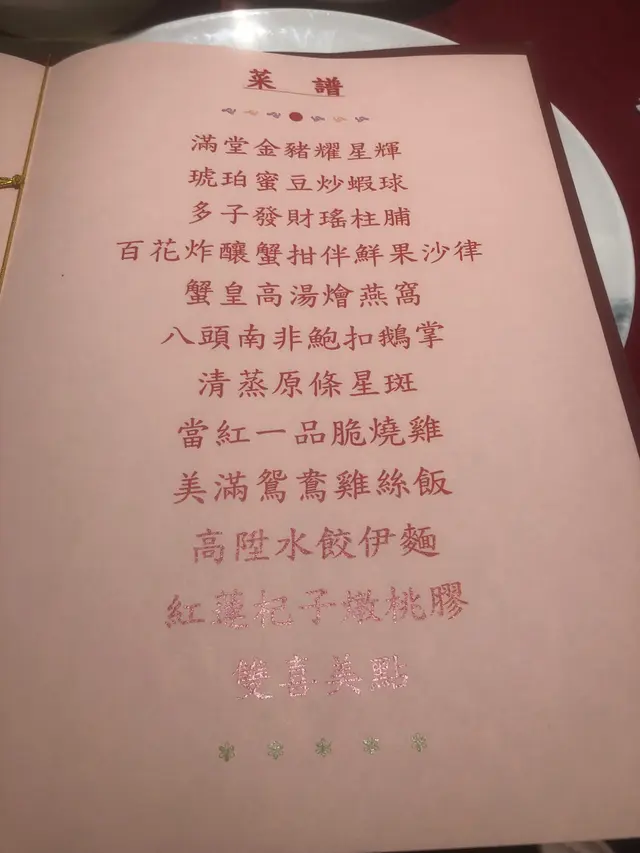 菜譜
滿堂金豬耀星輝
琥珀蜜豆炒蝦球
多子發財瑤柱脯
百花炸釀蟹拑伴鮮果沙律
蟹皇高湯燴燕窩
八頭南非鮑扣鵝掌
清蒸原條星斑
當紅一品脆燒雞
美滿鴛鴦雞絲飯
高陞水餃伊麵
紅蓮杞子燉桃膠
雙喜美點